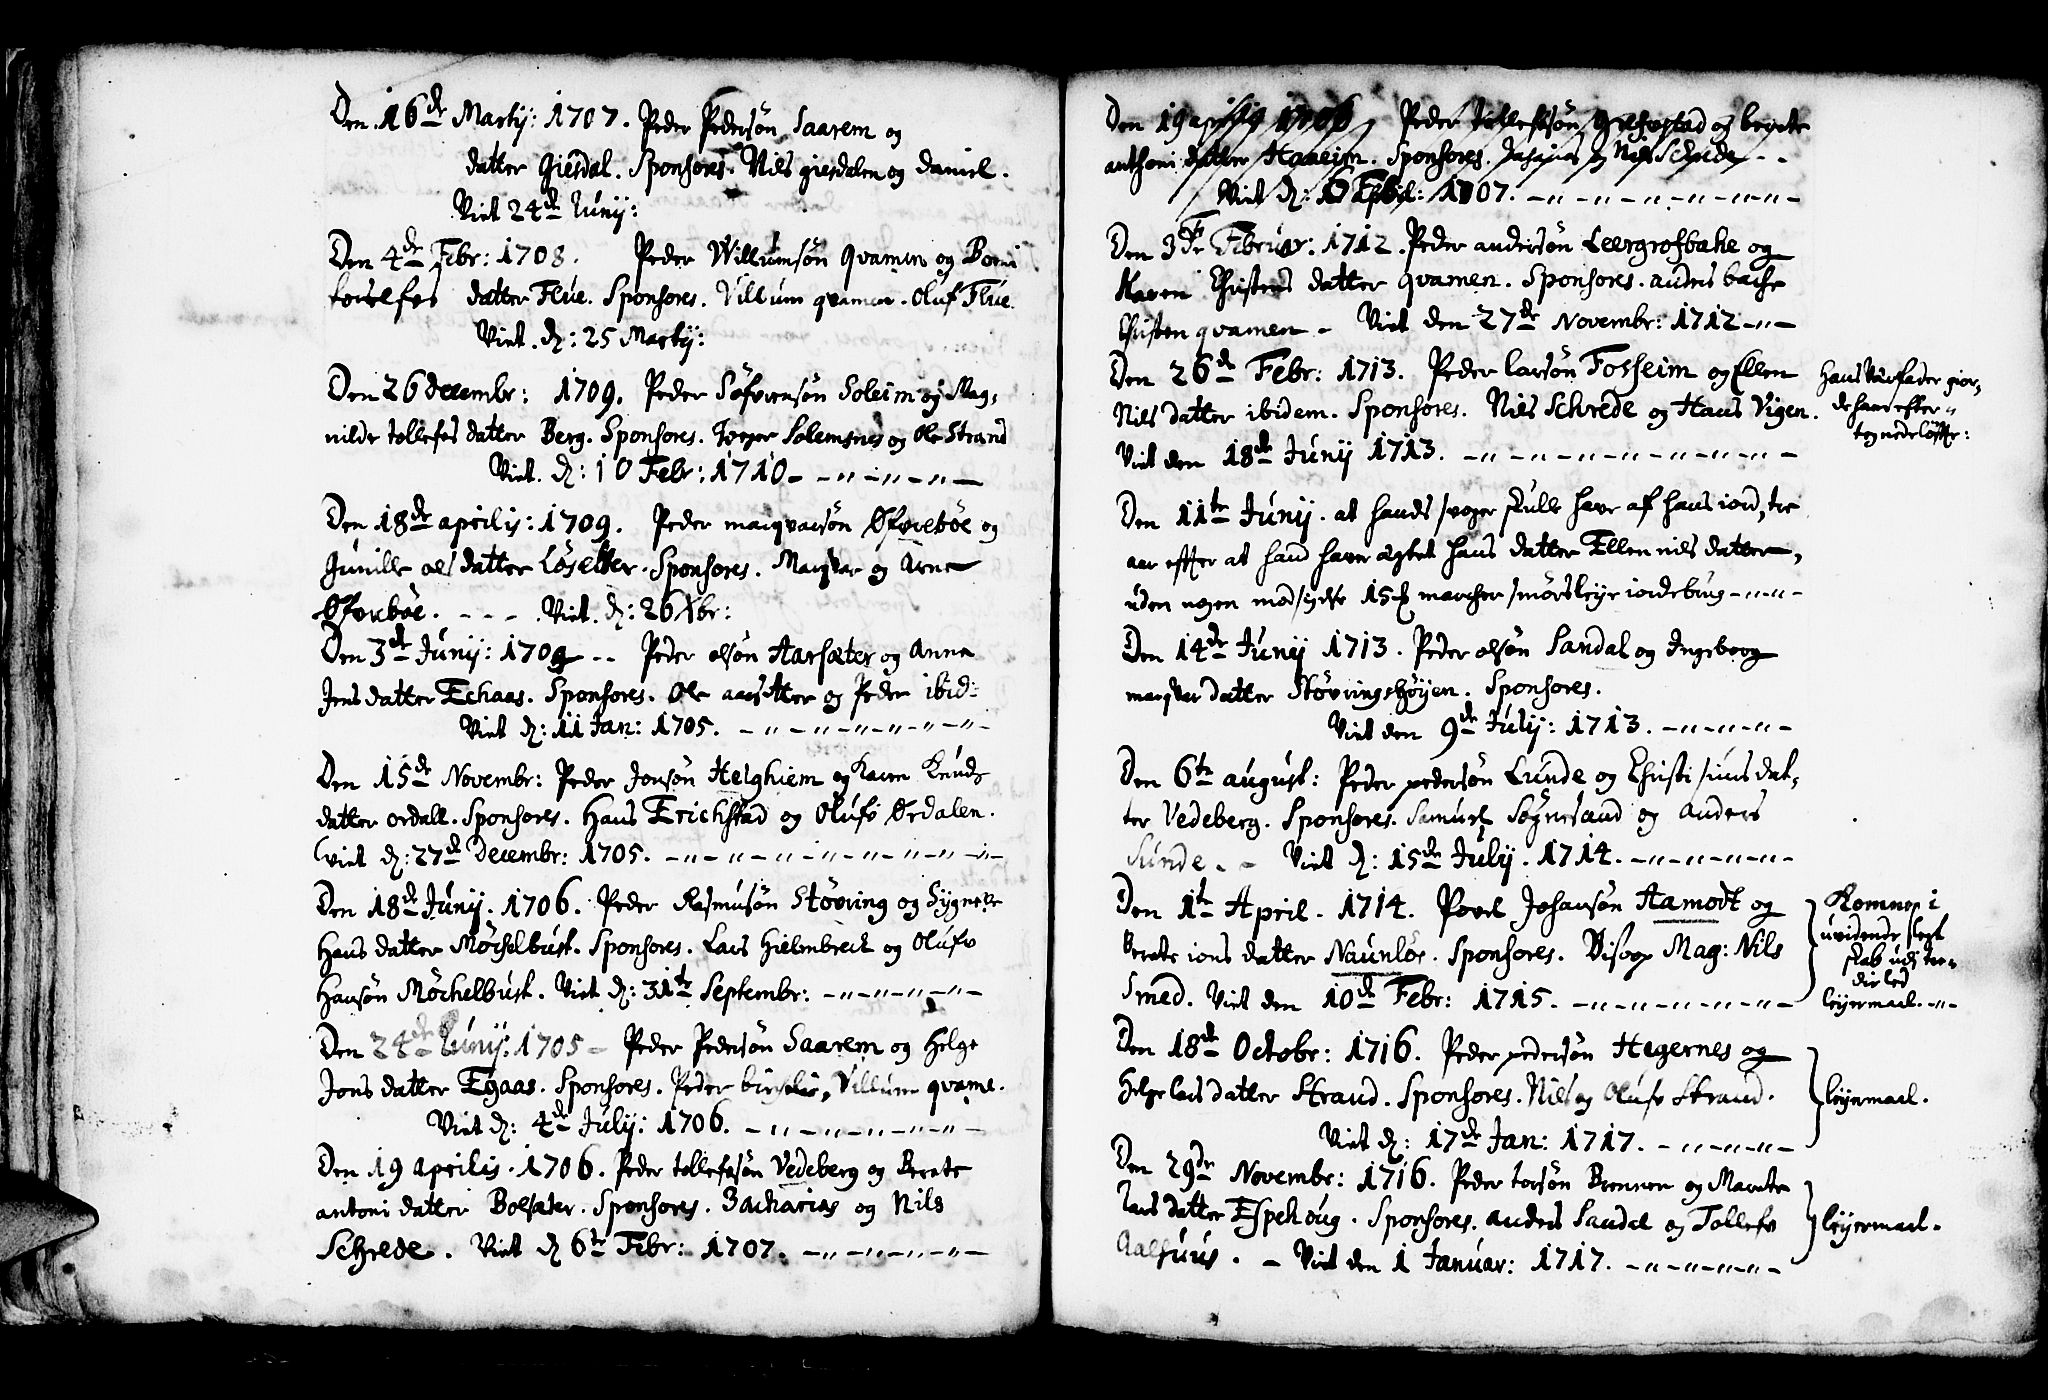 Den 16de Martij: 1707. Peder Pedersön Saarem og
datter Giesdal. Sponsores. Nils giesdalen og Daniel.
Viet 24de Junij:
Den 4de Febr: 1708. Peder Willumsön Qvamen og
datter Flue. Sponsores. Villum qvamen. Oluf Flue
Viet. d: 25 Martij:
Den 26 decembr: 1709. Peder Söfrensön Soleim og Mag-
nilde tollefes datter Berg. Sponsores. Solemsnes og Ole Strand
Viet. d: 10 Febr: 1710
Den 18de aprilij: 1709. Peder marqvarsön Øfreböe og
Gunille ols datter Löseter. Sponsores. Marqvar og Arne
Øfrebøe. - - - Viet. d: 26 Xbr:
Den 3de Junij: 1709 -- Peder olsön Harsæter og Anna
Jens datter Echaas. Sponsores. Ole aarsetter og Peder ibid:
Viet d: 11 Jan: 1705. -"-"-"-"-"-
Den 15de Novembr: Peder Jonsön Helghiem og Karen Knuds
datter ordall. Sponsores. Hans Erichstad og Olufv Ørdalen.
viet d: 27de Decembr: 1705. -"-"-"-"-"-
Den 18de Junij. 1706. Peder Rasmusön Stövring og Sygnelle
Hans datter Möchelbust. Sponsores. Lars Hielmbreck og Olufv
Hansön Möchelbust. Viet d: 31te Septembr: -"-"-"-
Den 24de Junij: 1705 - Peder Pedersön Saarem og Helge
Jons datter Egaas. Sponsores. Peder Villum qvame.
Viet d: 4de Julij: 1706. -"-"-"-"-
Den 19 Aprilis. 1706. Peder tollefsön Vedeberg og Berete
antoni datter Bolsæter. Sponsores. Zacharias og Nils
Schrede. Viet d 6te Febr: 1707. -"-"-"-
Den 19 aprilis 1706 Peder Tollefsön og berete
anthoni datter Haaeim. Sponsores. Nils Schrede - -
Viet d: 1707. -"-"-"-"-
Den 3die Februar: 1712. Peder andersön Leergrofbake og
Karen Christens datter qvamen. Sponsores. anders bache
Christen qvamen - Viet den 27de Novembr: 1712 -"-
Den 26de Febr: 1713. Peder larsön Fosseim og Ellen
Nils datter ibidem. Sponsores. Nils Schrede og Hans Vigen.
Viet den 18de Junij 1713. -"-"-"-"-"-
Hans Värfader gior-
de ham efter-
tegnede löfte:
Den 11te Junij. at hands svoger skulle have af hans iord, tre
aar efter at hand haver ægtet hans datter Ellen nils datter,
uden nogen modsydse 15 marcher smörsleye iordebrug -"-"-
Den 14de Junij 1713. Peder olsön Sandal og Ingeborg
marqvar datter Stövringshöyen. Sponsores.
Viet den 9de Julij: 1713. -"-"-"-
Den 6te august: Peder pedersön Lunde og Christi siurs dat-
ter Vedeberg. Sponsores. Samuel Sögnesand og anders
Sunde. - Viet d: 15de Julij. 1714. -"-"-"-
Den 1te April. 1714. Povel Johansön Hamodt og
Berete ions datter Naunlös. Sponsores. Bisoop Mag: Nils
Smed. Viet den 10de Febr: 1715. -"-"-"-"-
Komne i
uvidende slegt
skab udi tre-
die led
leyermaal. -"-
Den 18de Octobr: 1716. Peder pedersön Hegernes og
Helge lars datter Strand. Sponsores. Nils og Olufv Strand.
Viet d: 17de Jan: 1717. -"-"-"-
leyermaal.
Den 29de Novembr: 1716. Peder torsön Brennen og Marete
lars datter Espehoug. Sponsores. anders Sandal og Tollefv
Aalhuus. - Viet den 1 Januar: 1717. -"-"-"-
leyermaal.